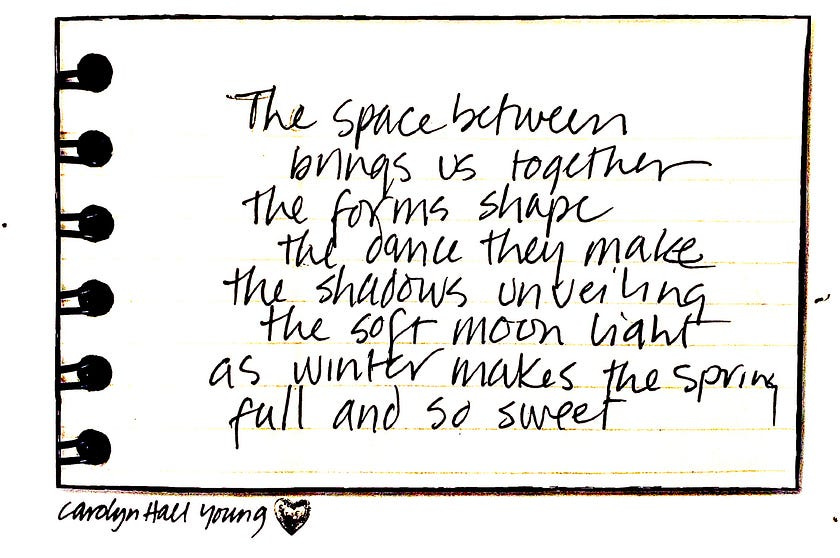 The space between
brings us together
the forms shape
the dance they make
the shadows unveiling
the soft moon light
as winter makes the spring
full and so sweet
Carolyn Hall Young